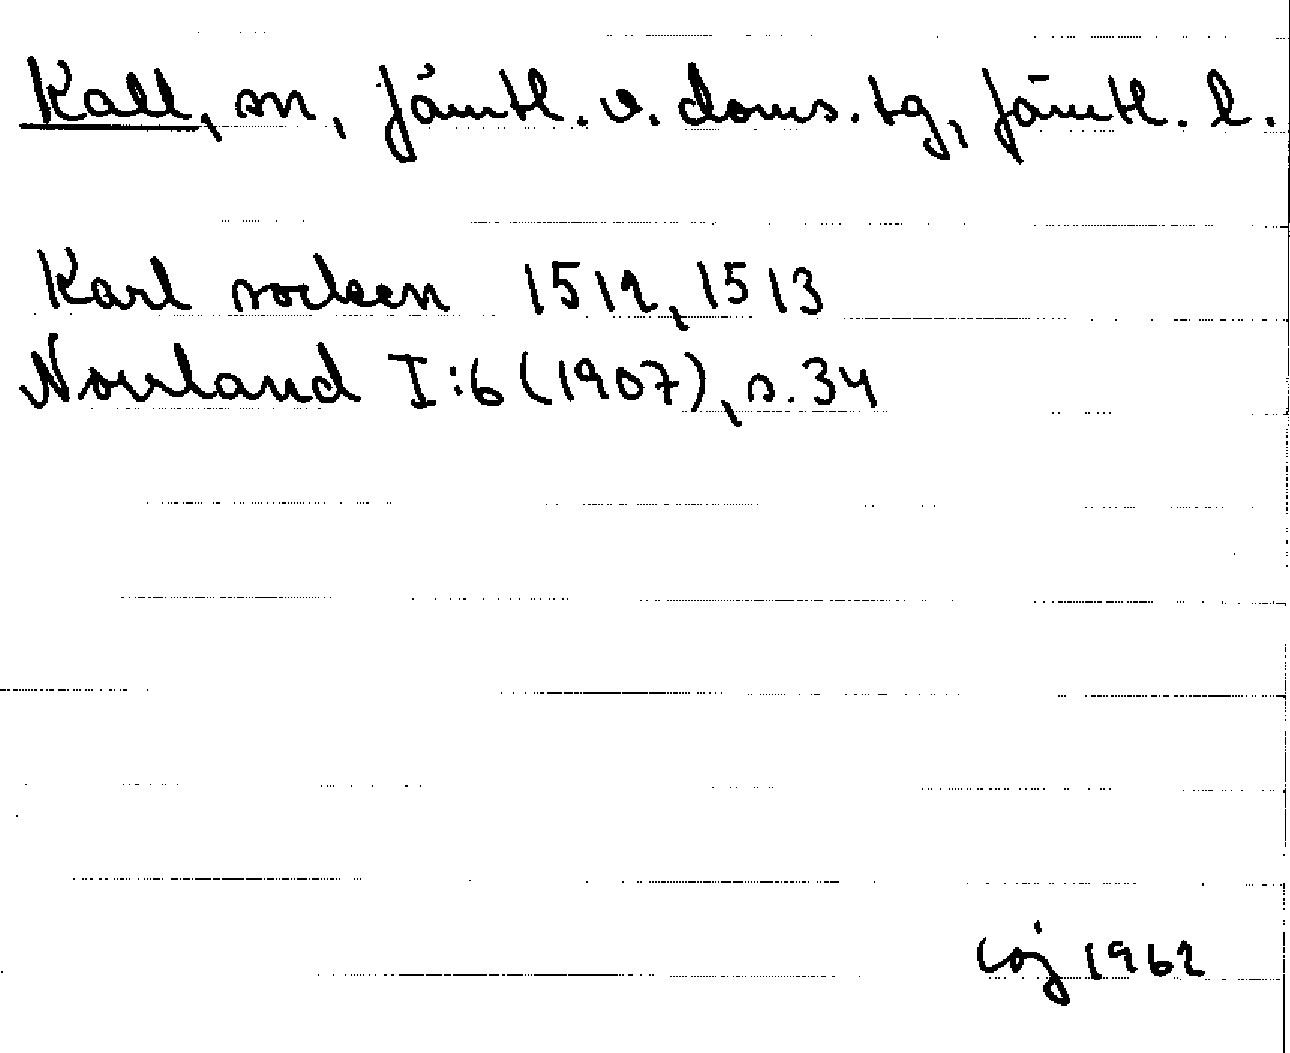 Kall, sn, Jämtl. v. doms. tg, Jämtl. l.
Karl socken 1512, 1513
Norrland I:6 (1907), s. 34
1962